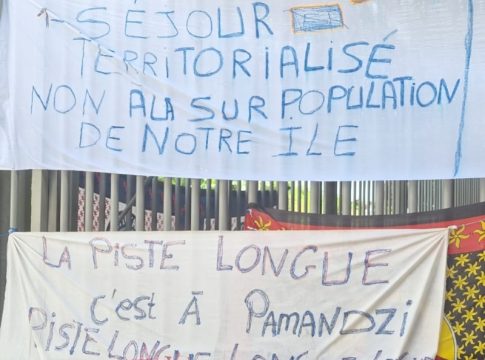 - SÉJOUR
TERRITORIALISÉ
NON A LA SUR POPULATION
DE NOTRE ILE
LA PISTE LONGUE
C'est À PAMANDZI
PISTE LONGUE